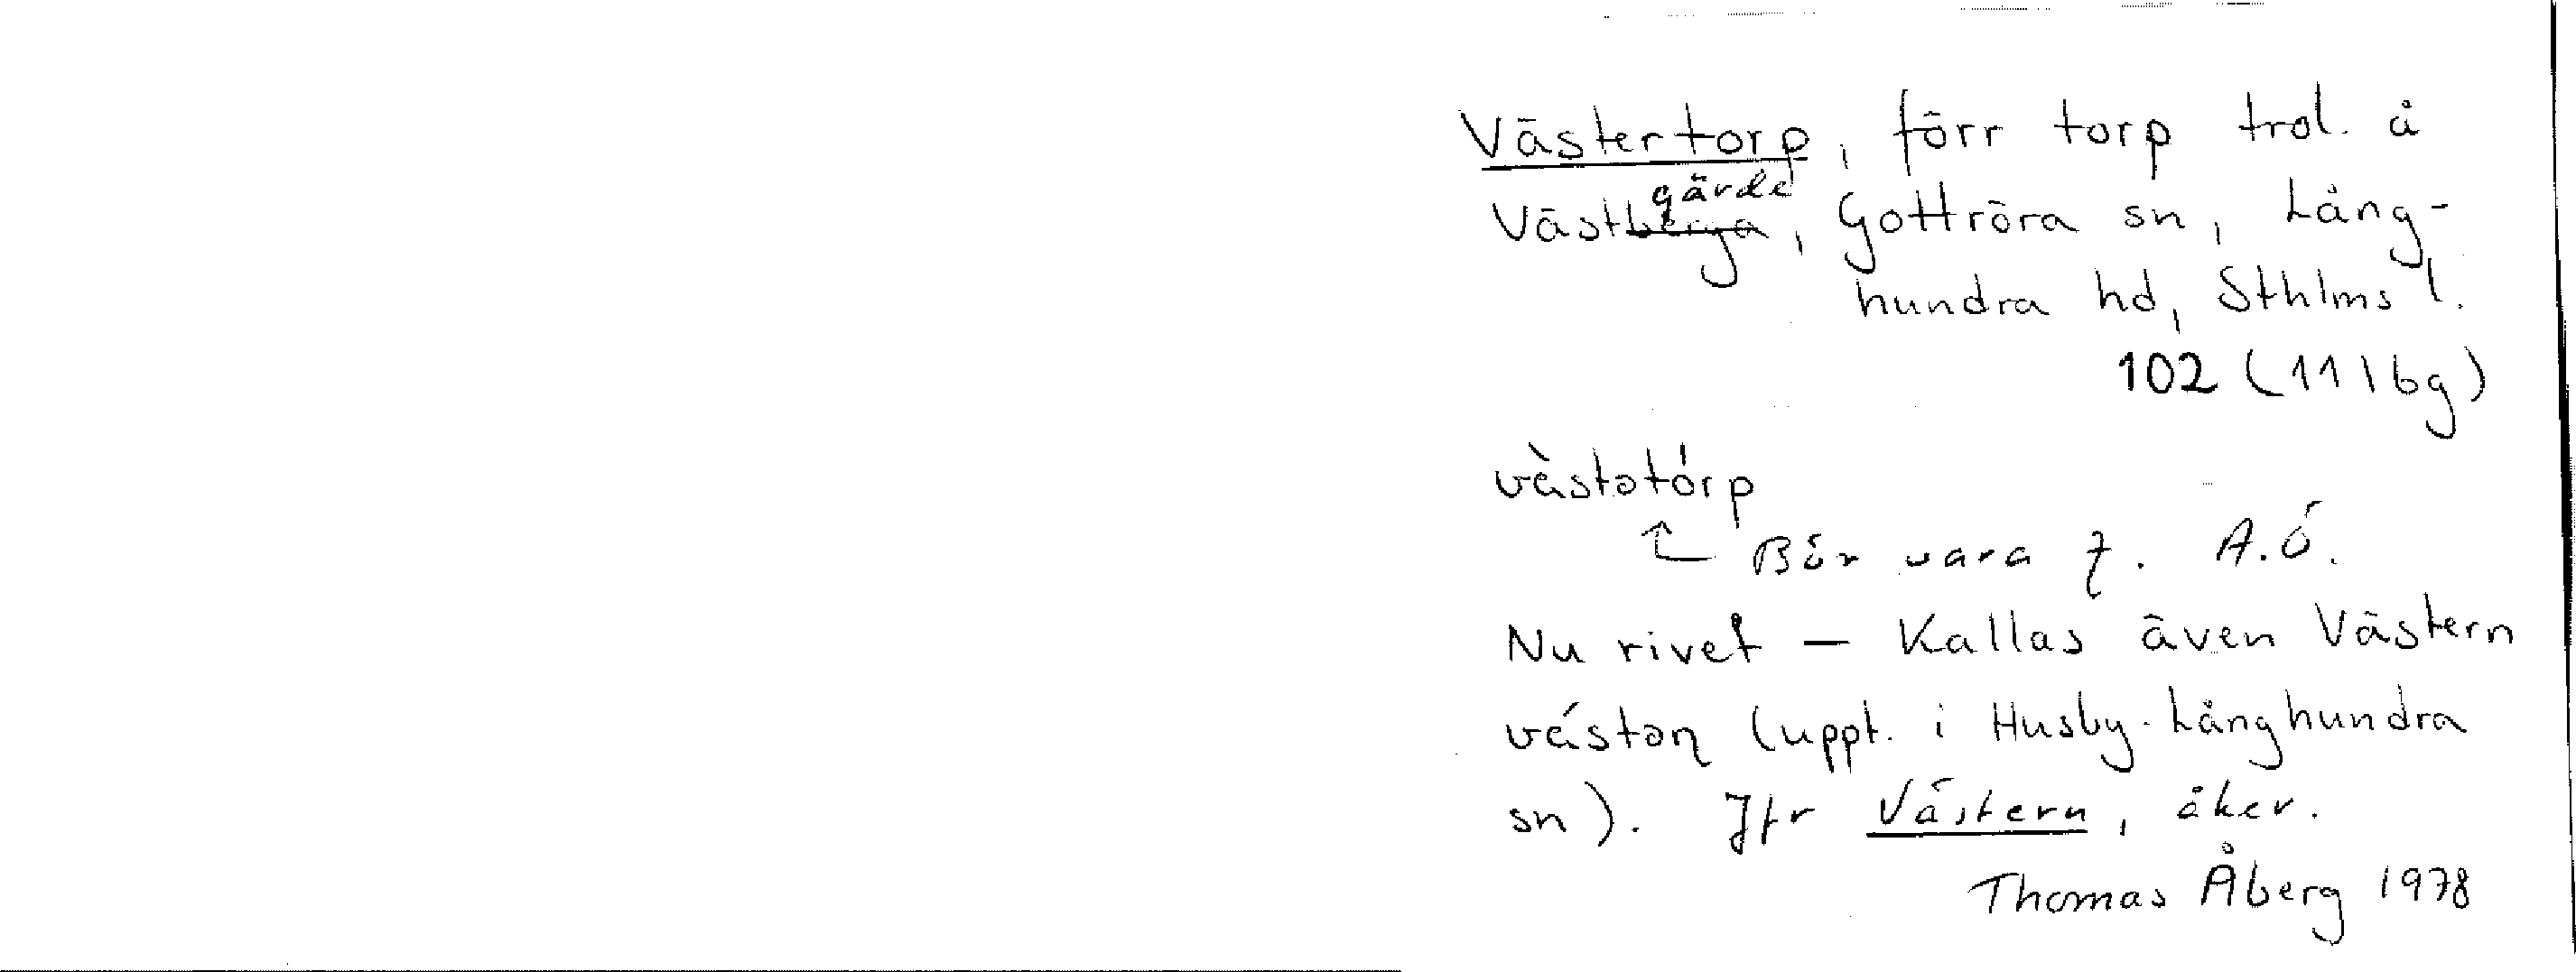 Västertorp, förr torp trol. å
Västgärde, Gottröra sn, Lång-
hundra hd, Sthlms l.
102 (11I6g)
vàstətórp
↑ Bör vara ț. A.Ö.
Nu rivet – Kallas även Västern
vástəɳ (uppt. i Husby-Långhundra
sn). Jfr Västern, åker.
Thomas Åberg 1978